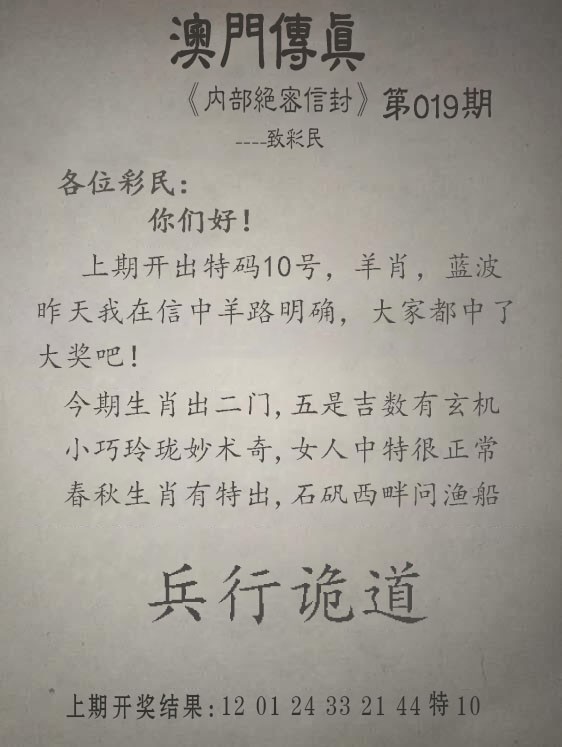 澳門傳眞
《内部絕密信封》第019期
----致彩民
各位彩民:
你们好!
上期开出特码10号，羊肖，蓝波
昨天我在信中羊路明确，大家都中了
大奖吧!
今期生肖出二门,五是吉数有玄机
小巧玲珑妙术奇,女人中特很正常
春秋生肖有特出,石矾西畔问渔船
兵行诡道
上期开奖结果:12 01 24 33 21 44 特 10